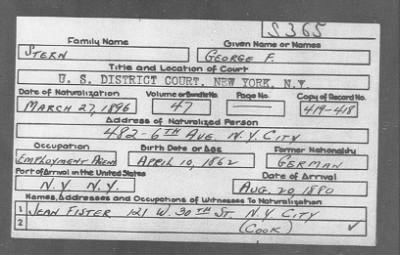 S365
Family Name Given Name or Names
STERN GEORGE F.
Title and Location of Court
U. S. DISTRICT COURT, NEW YORK, N.Y
Date of Naturalization Volume or Bundle No. Page No. Copy of Record No.
MARCH 27, 1896 47 419-418
Address of Naturalized Person
482-6TH AVE. N.Y. CITY
Occupation Birth Date or Age Former Nationality
EMPLOYMENT AGENT APRIL 10, 1862 GERMAN
Port of Arrival in the United States Date of Arrival
N.Y. N.Y. AUG. 20, 1880
Names, Addresses and Occupations of Witnesses To Naturalization
1 JEAN FISTER 121 W. 30TH ST. N.Y. CITY
2 (COOK) ✓